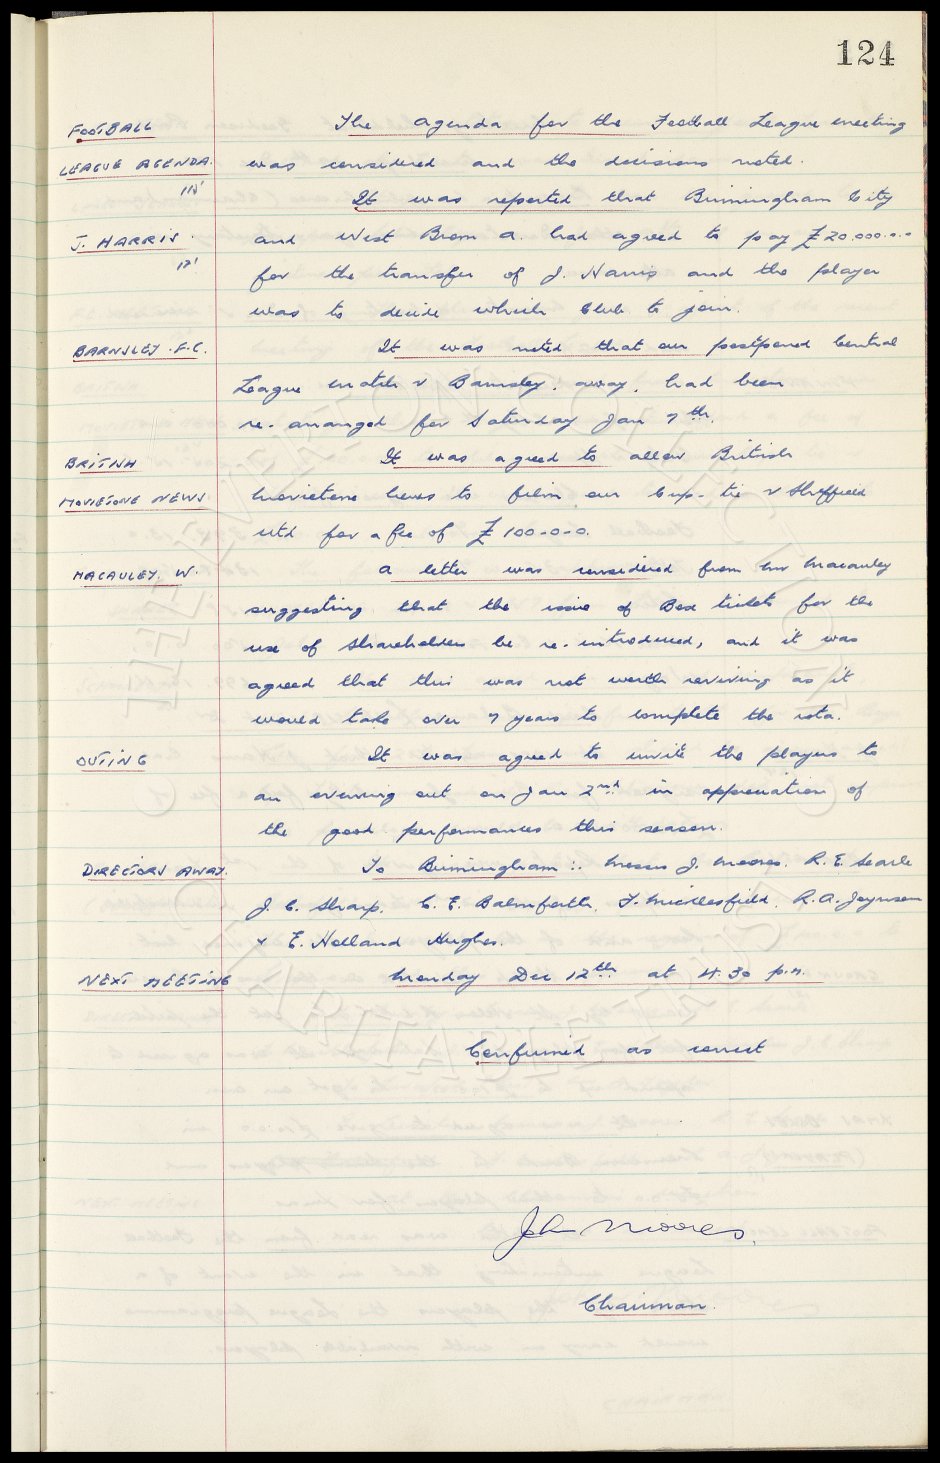 124
FOOTBALL The agenda for the Football League meeting
LEAGUE AGENDA. was considered and the decisions noted.
It was reported that Birmingham City
J. HARRIS and West Brom A. had agreed to pay £20,000-0-0
for the transfer of J. Harris and the player
was to decide which Club to join.
BARNSLEY. F.C. It was noted that our postponed Central
League match v Barnsley, away, had been
re-arranged for Saturday Jan 7th.
BRITISH It was agreed to allow British
MOVIETONE NEWS Movietone News to film our Cup-tie v Sheffield
Utd for a fee of £100-0-0.
MACAULEY. W. A letter was considered from Mr Macauley
suggesting that the issue of Box tickets for the
use of Shareholders be re-introduced, and it was
agreed that this was not worth reviving as it
would take over 7 years to complete the rota.
OUTING It was agreed to invite the players to
an evening out on Jan 2nd in appreciation of
the good performances this season.
DIRECTORS AWAY. To Birmingham :- Messrs J. Moores. R. E. Searle
J. C. Sharp. C. E. Balmforth. F. Micklesfield. R. A. Joynson
& E. Holland Hughes.
NEXT MEETING Monday Dec 12th at 4.30 p.m.
Confirmed as correct
John Moores.
Chairman.